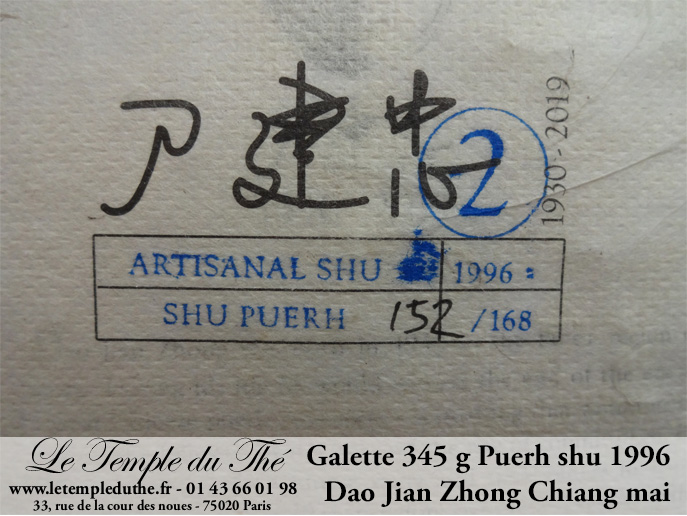 刀建忠
2
1930 - 2019
ARTISANAL SHU 1996 :
SHU PUERH 152 /168
Le Temple du Thé
www.letempleduthe.fr - 01 43 66 01 98
33, rue de la cour des noues - 75020 Paris
Galette 345 g Puerh shu 1996
Dao Jian Zhong Chiang mai